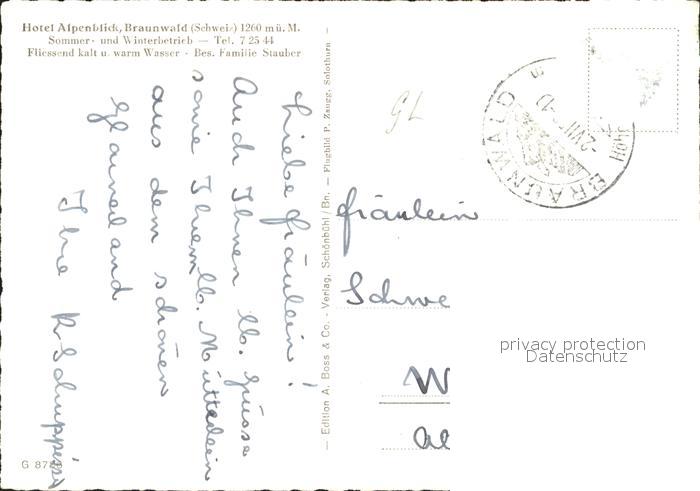 Hotel Alpenblick, Braunwald (Schweiz) 1260 m ü. M.
Sommer- und Winterbetrieb — Tel. 7 25 44
Fliessend kalt u. warm Wasser - Bes. Familie Stauber
Liebe Fräulein!
Auch Ihnen lb. Grüsse
sowie Ihrem lb. Mütterlein
aus dem schönen
Glarnerland
Ihre
— Edition A. Boss & Co. - Verlag, Schönbühl/Bn. — Flugbild P. Zaugg, Solothurn —
GL
BRAUNWALD
Fräulein
Schwe
W
al
privacy protection
Datenschutz
G 87